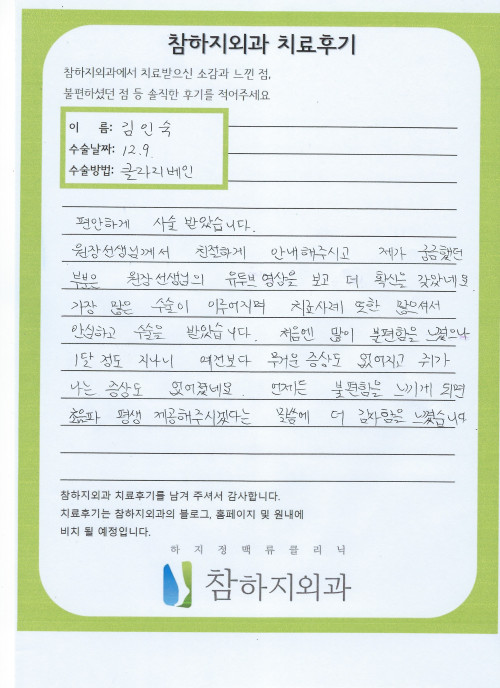 참하지외과 치료후기
참하지외과에서 치료받으신 소감과 느낀 점,
불편하셨던 점 등 솔직한 후기를 적어주세요
이 름: 김인숙
수술날짜: 12.9.
수술방법: 클라리베인
편안하게 시술 받았습니다.
원장선생님께서 친절하게 안내해주시고 제가 궁금했던
부분은 원장선생님의 유투브 영상을 보고 더 확신을 갖았네요
가장 많은 수술이 이루어지며 치료사례 또한 많으셔서
안심하고 수술을 받았습니다. 처음엔 많이 불편함을 느꼈으나
1달 정도 지나니 예전보다 무거운 증상도 없어지고 쥐가
나는 증상도 없어졌네요. 언제든 불편함을 느끼게 되면
초음파 평생 제공해주시겠다는 말씀에 더 감사함을 느꼈습니다
참하지외과 치료후기를 남겨 주셔서 감사합니다.
치료후기는 참하지외과의 블로그, 홈페이지 및 원내에
비치 될 예정입니다.
하지정맥류클리닉
참하지외과